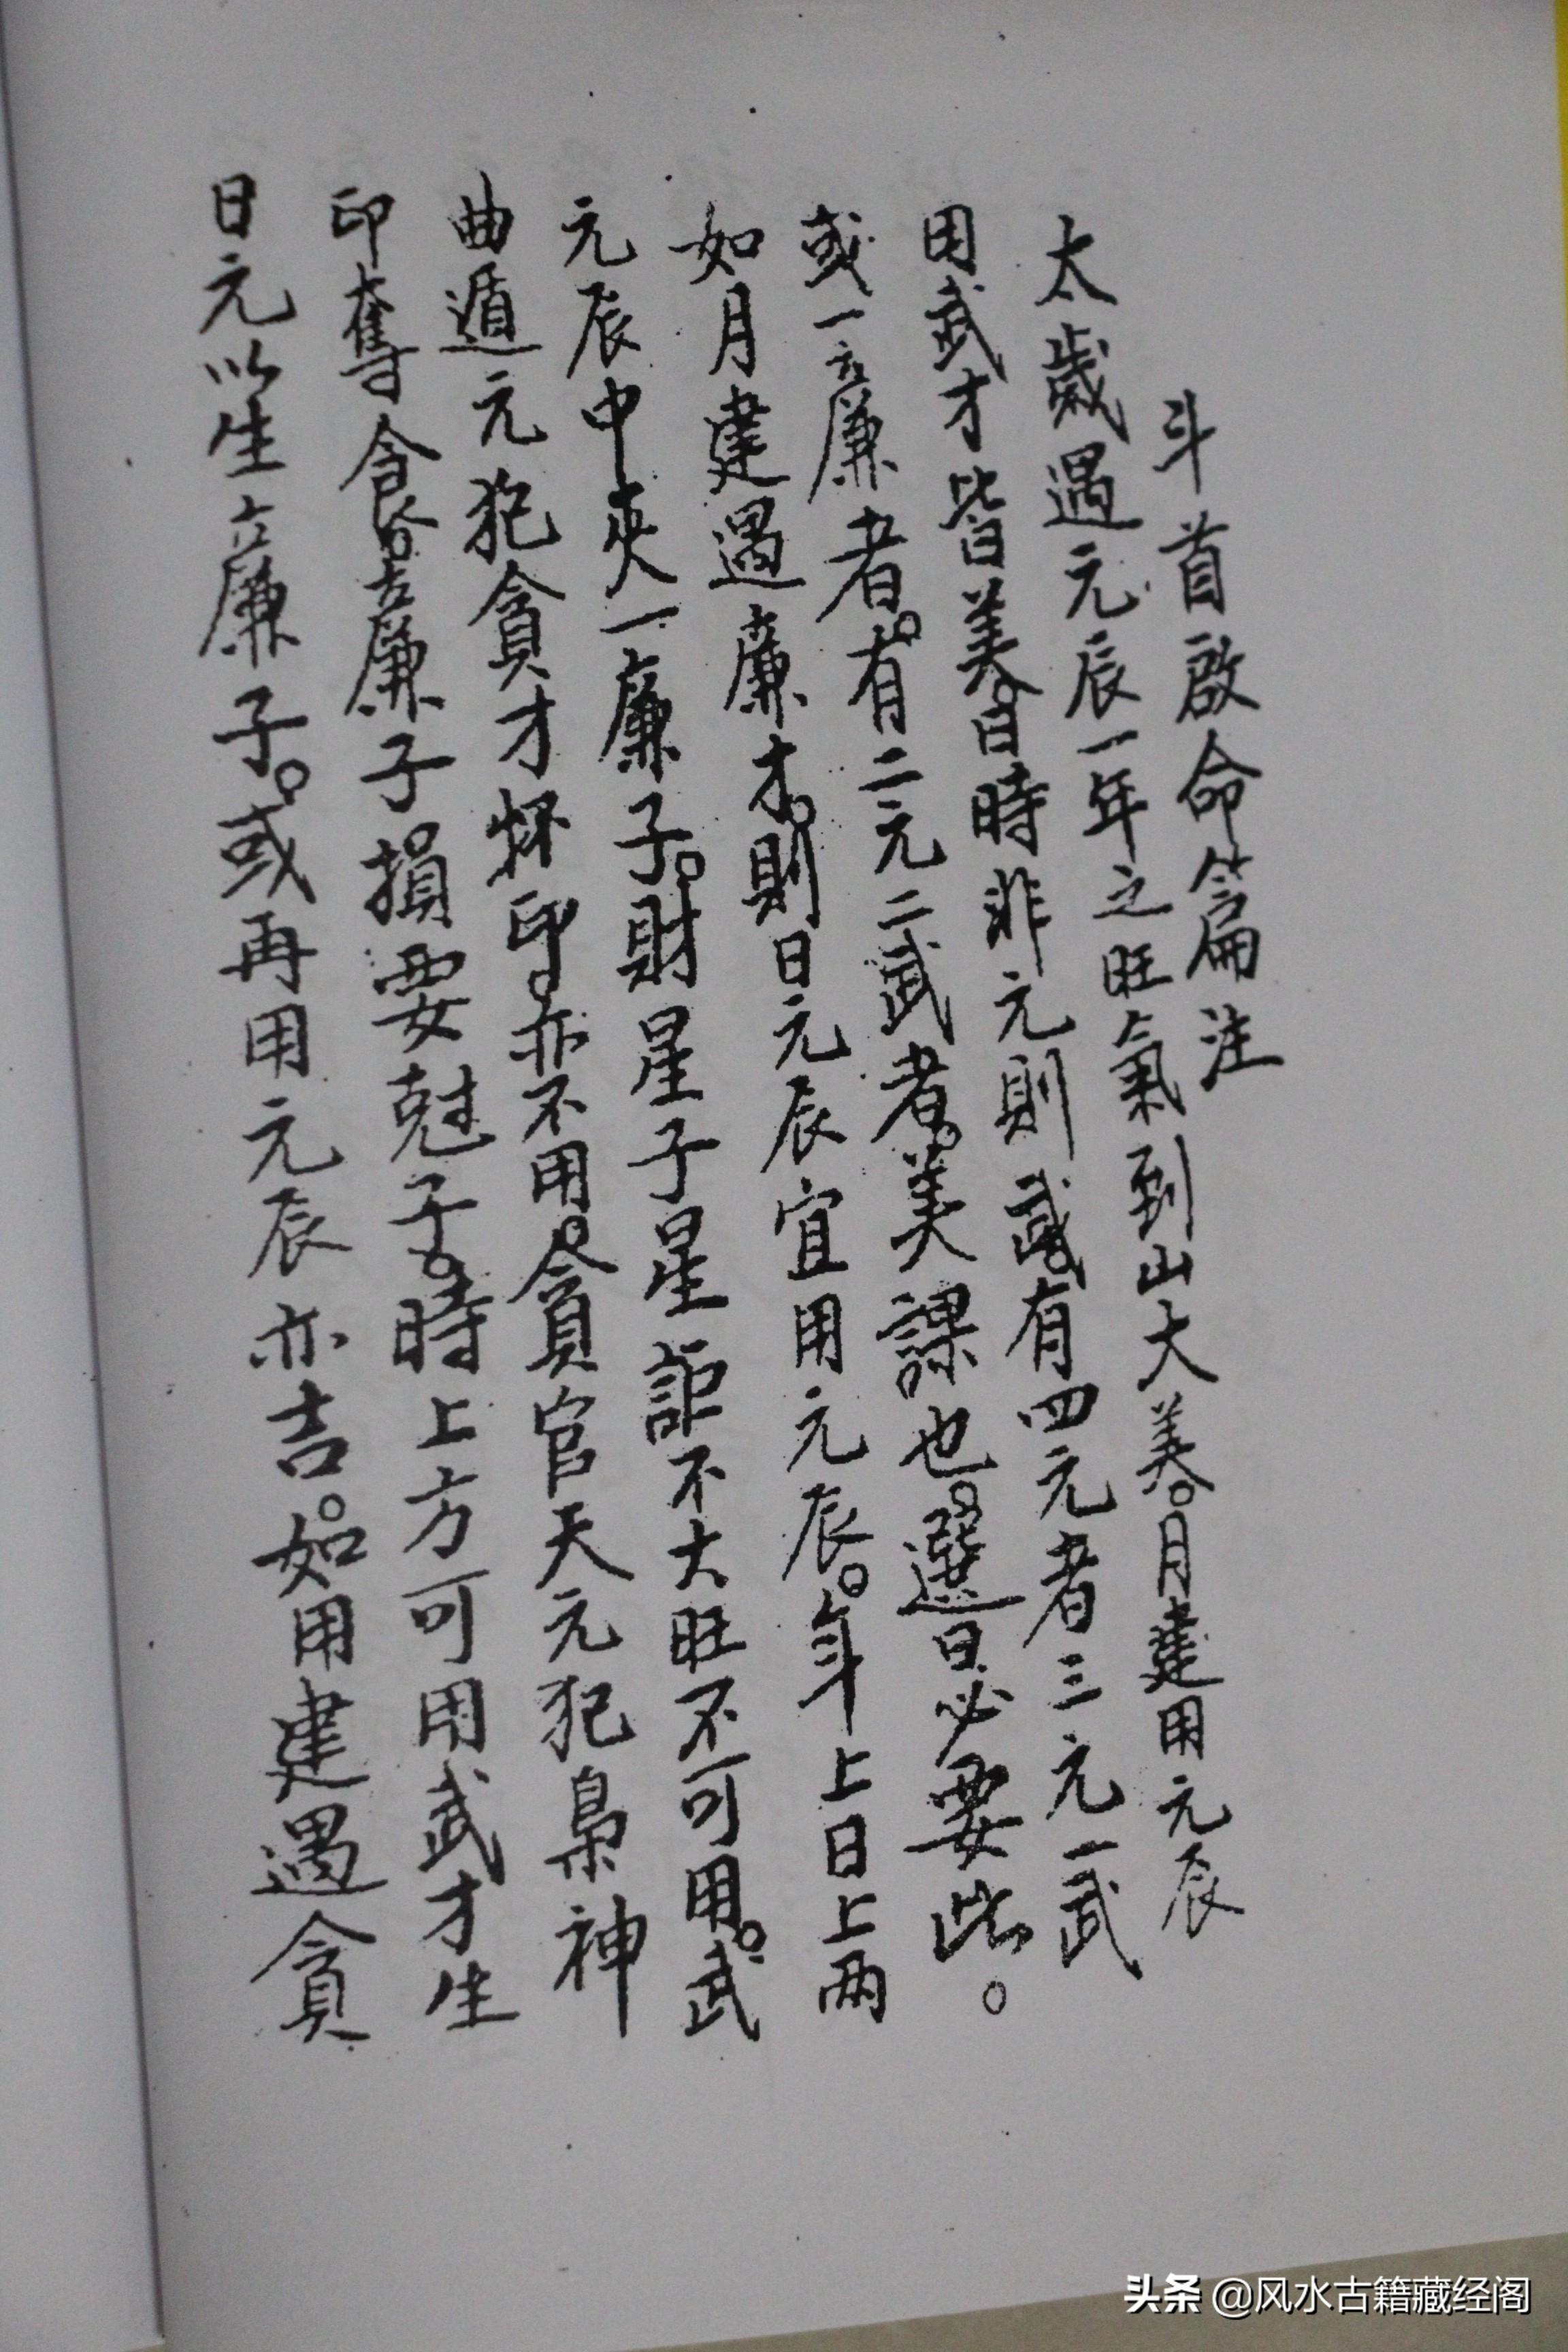 斗首啟命篇注
太歲遇元辰一年之旺氣到山大美。月建用元辰
用武才皆美。日時非元則武。有四元者三元一武
或一元廉者。有二元二武者。美課也。選日必要此。
如月建遇廉才。則日元辰宜用元辰。年上日上两
元辰中夾一廉子。財星子星詎不大旺不可用。武
曲遁元犯貪才怀印。亦不用。貪官天元犯梟神
印奪食。廉子損要尅子。時上方可用武才生
日元以生廉子。或再用元辰亦吉。如用建遇貪
头条 @风水古籍藏经阁